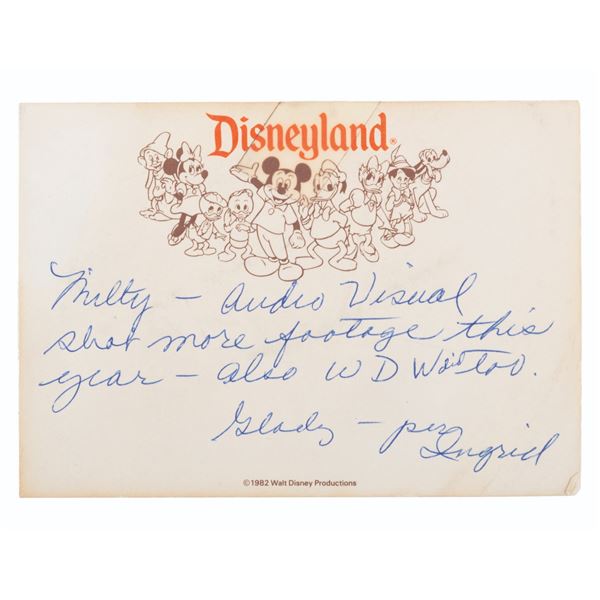 Disneyland®
Milty - Audio Visual
shot more footage this
year - also W D W too.
Glady - per
Ingrid
© 1982 Walt Disney Productions